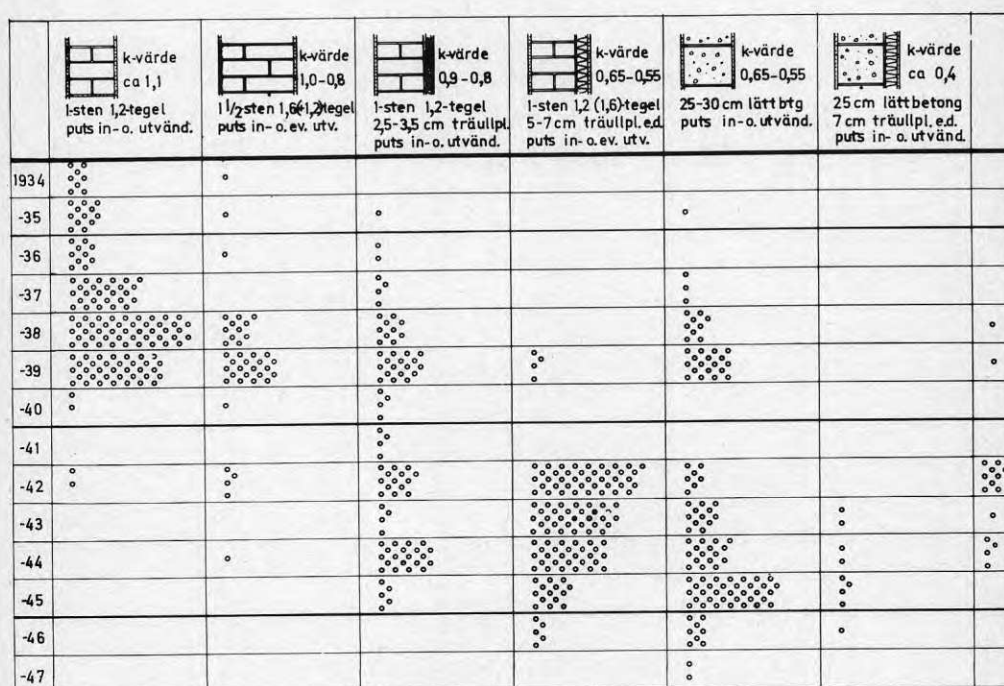 k-värde
ca 1,1
1-sten 1,2-tegel
puts in- o. utvänd.
k-värde
1,0-0,8
1 1/2 sten 1,6(-1,2)tegel
puts in- o. ev. utv.
k-värde
0,9-0,8
1-sten 1,2-tegel
2,5-3,5 cm träullpl.
puts in- o. utvänd.
k-värde
0,65-0,55
1-sten 1,2 (1,6)-tegel
5-7 cm träullpl. e.d.
puts in- o. ev. utv.
k-värde
0,65-0,55
25-30 cm lättbtg
puts in- o. utvänd.
k-värde
ca 0,4
25 cm lättbetong
7 cm träullpl. e.d.
puts in- o. utvänd.
1934
-35
-36
-37
-38
-39
-40
-41
-42
-43
-44
-45
-46
-47